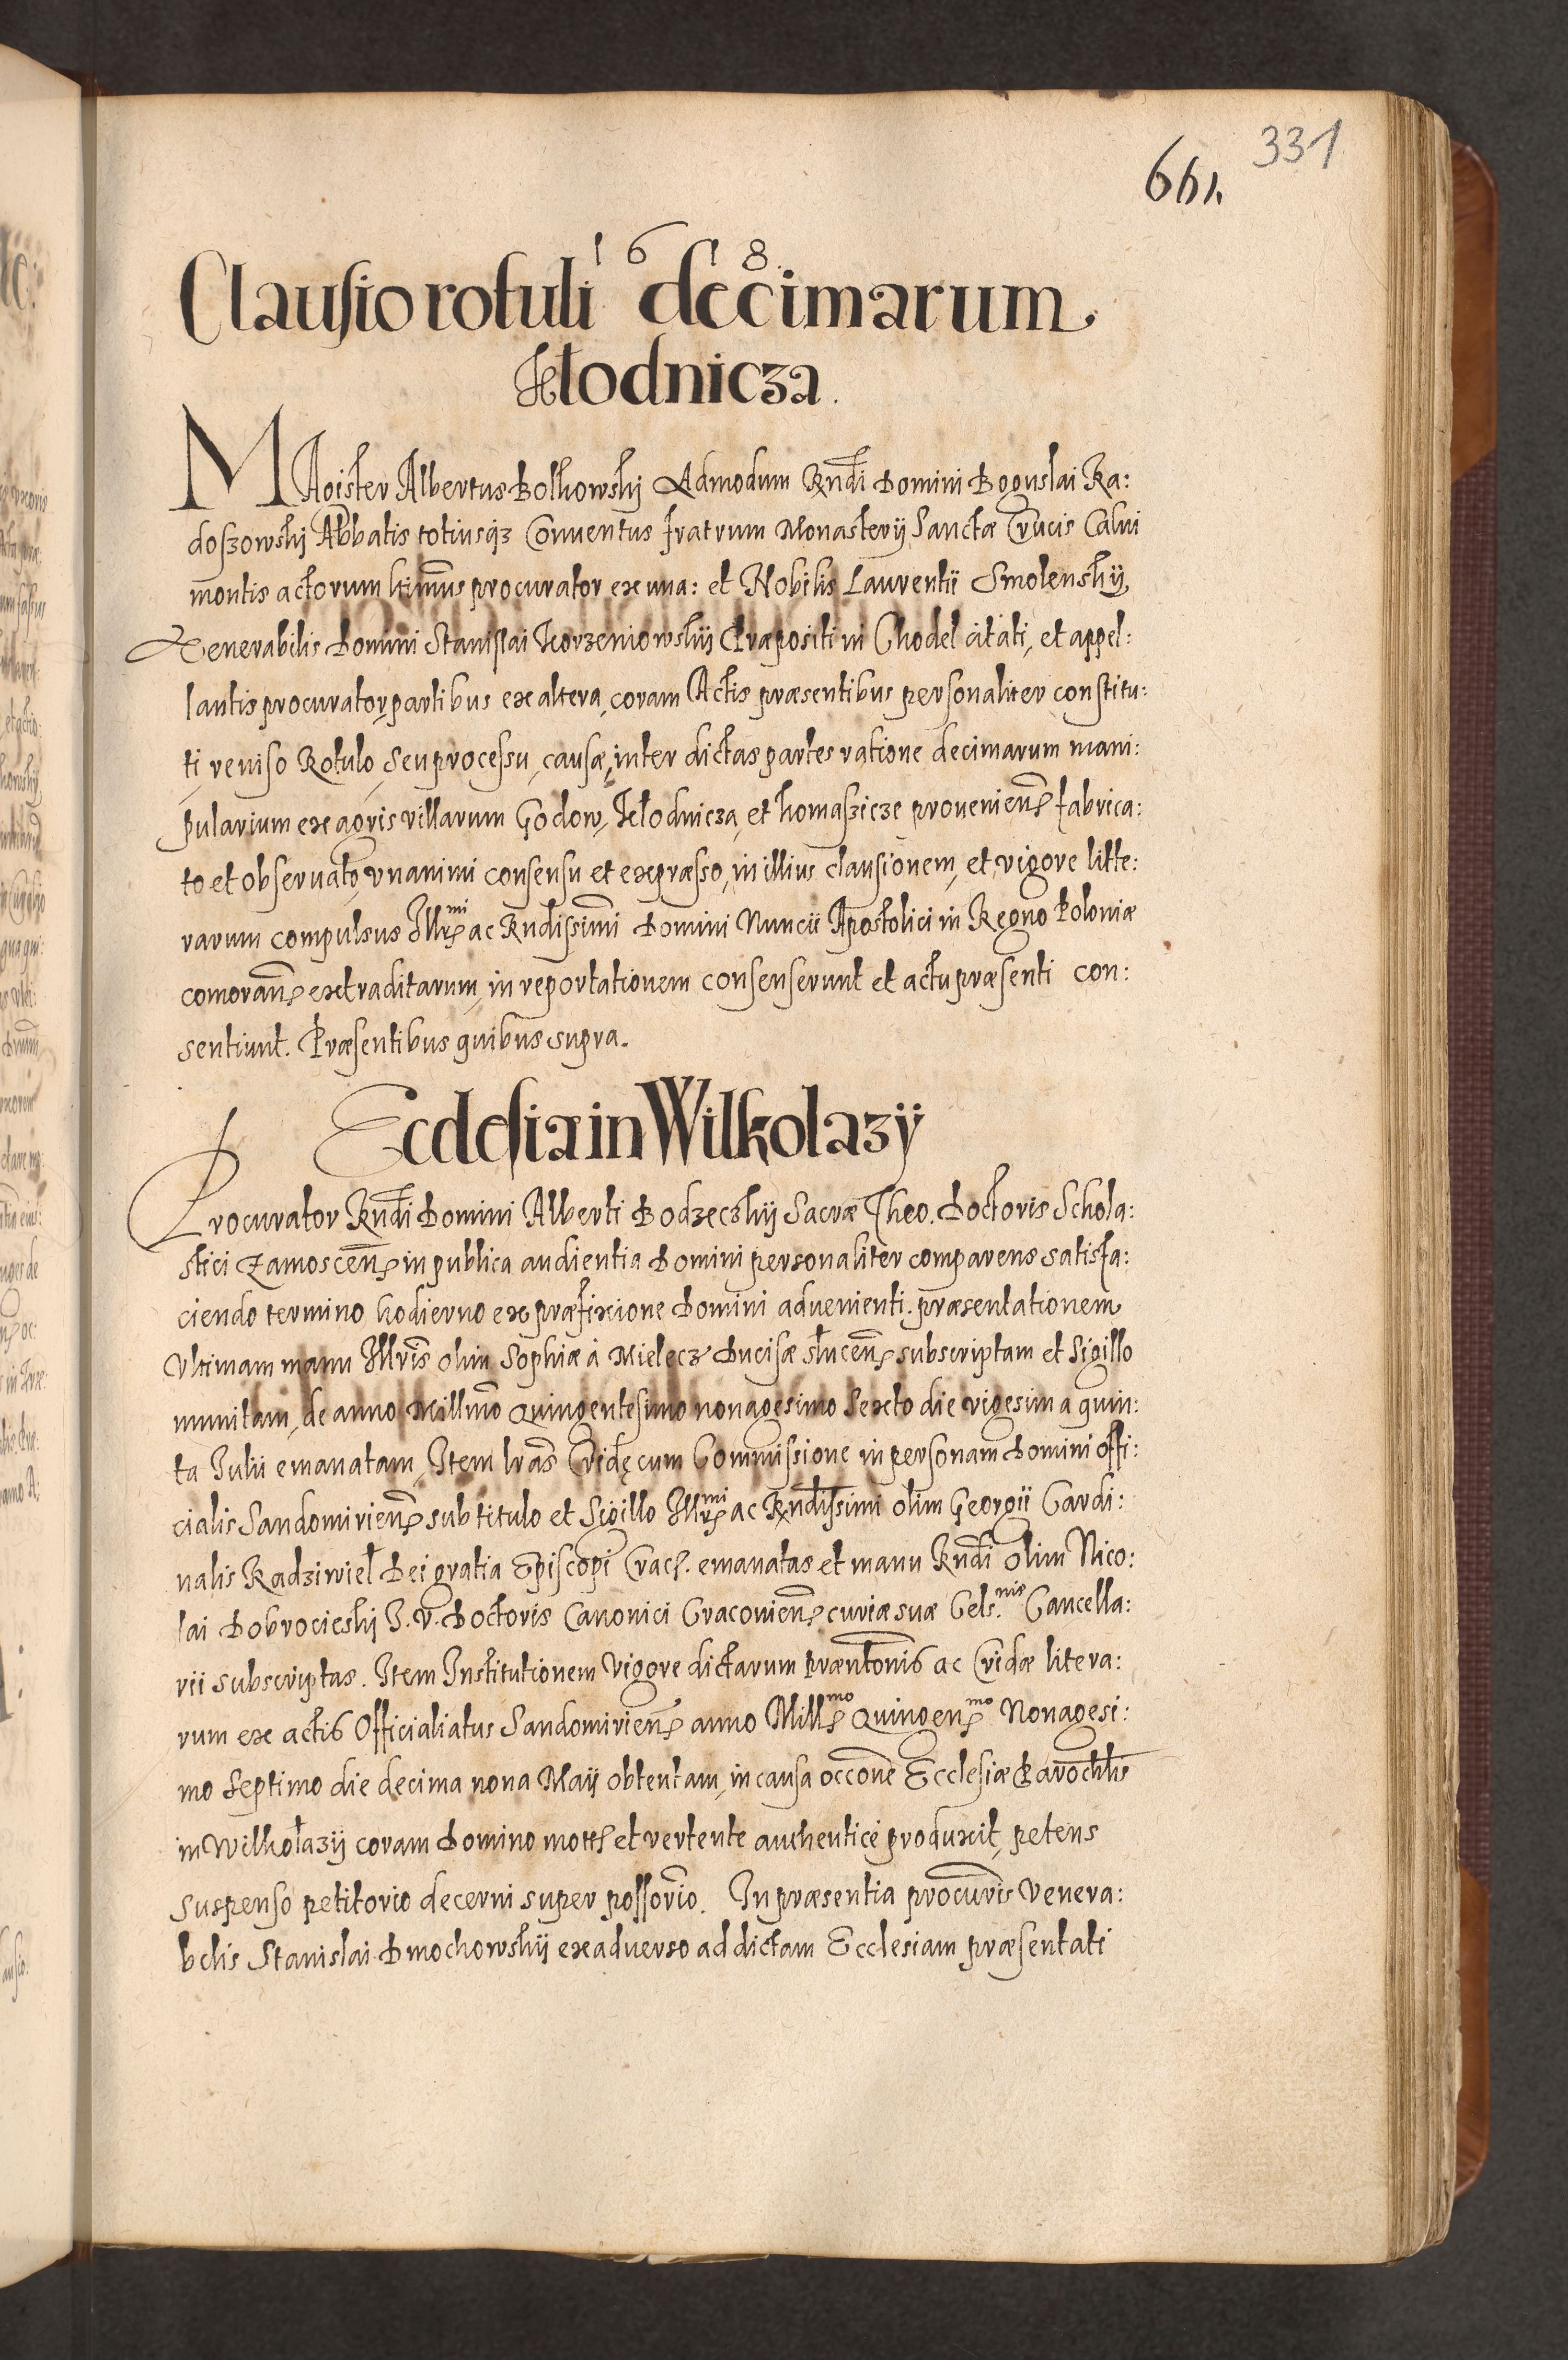 331
661.
1618.
Clausio rotuli decimarum
Kłodnicza.
MAgister Albertus Bolkowskj Admodum Rndi Domini Boguslai Ra:
doszowskj Abbatis totiusq3 Conuentus fratrum Monasterij Sanctæ Crucis Calui
montis actorum ltimus procurator ex una: et Nobilis Laurentii Smolenskij,
Venerabilis Domini Stanislai Korzeniowskij Præpositi in Chodel citati, et appel:
lantis procurator, partibus ex altera, coram Actis præsentibus personaliter constitu:
ti, reuiso Rotulo, seu processu, causæ, inter dictas partes ratione decimarum mani:
pularium ex agris villarum Godow, Kłodnicza, et Thomaszicze prouenien. fabrica:
to et obseruato, vnanimi consensu et expræsso, in illius clausionem, et vigore litte:
rarum compulsus Illr.mi ac Rndissimi Domini Nuncii Apostolici in Regno Poloniæ
comoran. extraditarum, in reportationem consenserunt et actu præsenti con:
sentiunt. Præsentibus quibus supra.
Ecclesia in Wilkolazÿ
Procurator Rndi Domini Alberti Bodzeczkij Sacræ Theo. Doctoris Schola:
stici Zamoscen. in publica audientia Domini personaliter comparens satisfa:
ciendo termino hodierno ex præfixione Domini aduenienti. præsentationem
Vltimam manu Illris olim Sophiæ à Mielecz Ducisæ słucen. subscriptam et Sigillo
munitam, de anno Millmo Quingentesimo nonagesimo Sexto die vigesima quin:
ta Iulii emanatam, Item lras Cridę cum Commissione in personam Domini offi:
cialis Sandomirien. sub titulo et Sigillo Illr.mi ac Rndissimi olim Georgii Cardi:
nalis Radziwieł Dei gratia Episcopi Crac. emanatas et manu Rndi olim Nico:
lai Dobrocieskj I. V. Doctoris Canonici Cracouien. curiæ suæ Cels.nis Cancella:
rii subscriptas. Item Institutionem Vigore dictarum præntonis ac Cridæ litera:
rum ex actis Officialiatus Sandomirien. anno Mill.mo Quingen.mo Nonagesi:
mo Septimo die decima nona Maij obtentam, in causa occone Ecclesiæ Parochlis
in Wilkołazij coram Domino mott. et vertente authenticè produxit, petens
suspenso petitorio decerni super possorio. In præsentia procuris Venera:
bclis Stanislai Dmochowskij ex aduerso ad dictam Ecclesiam præsentati